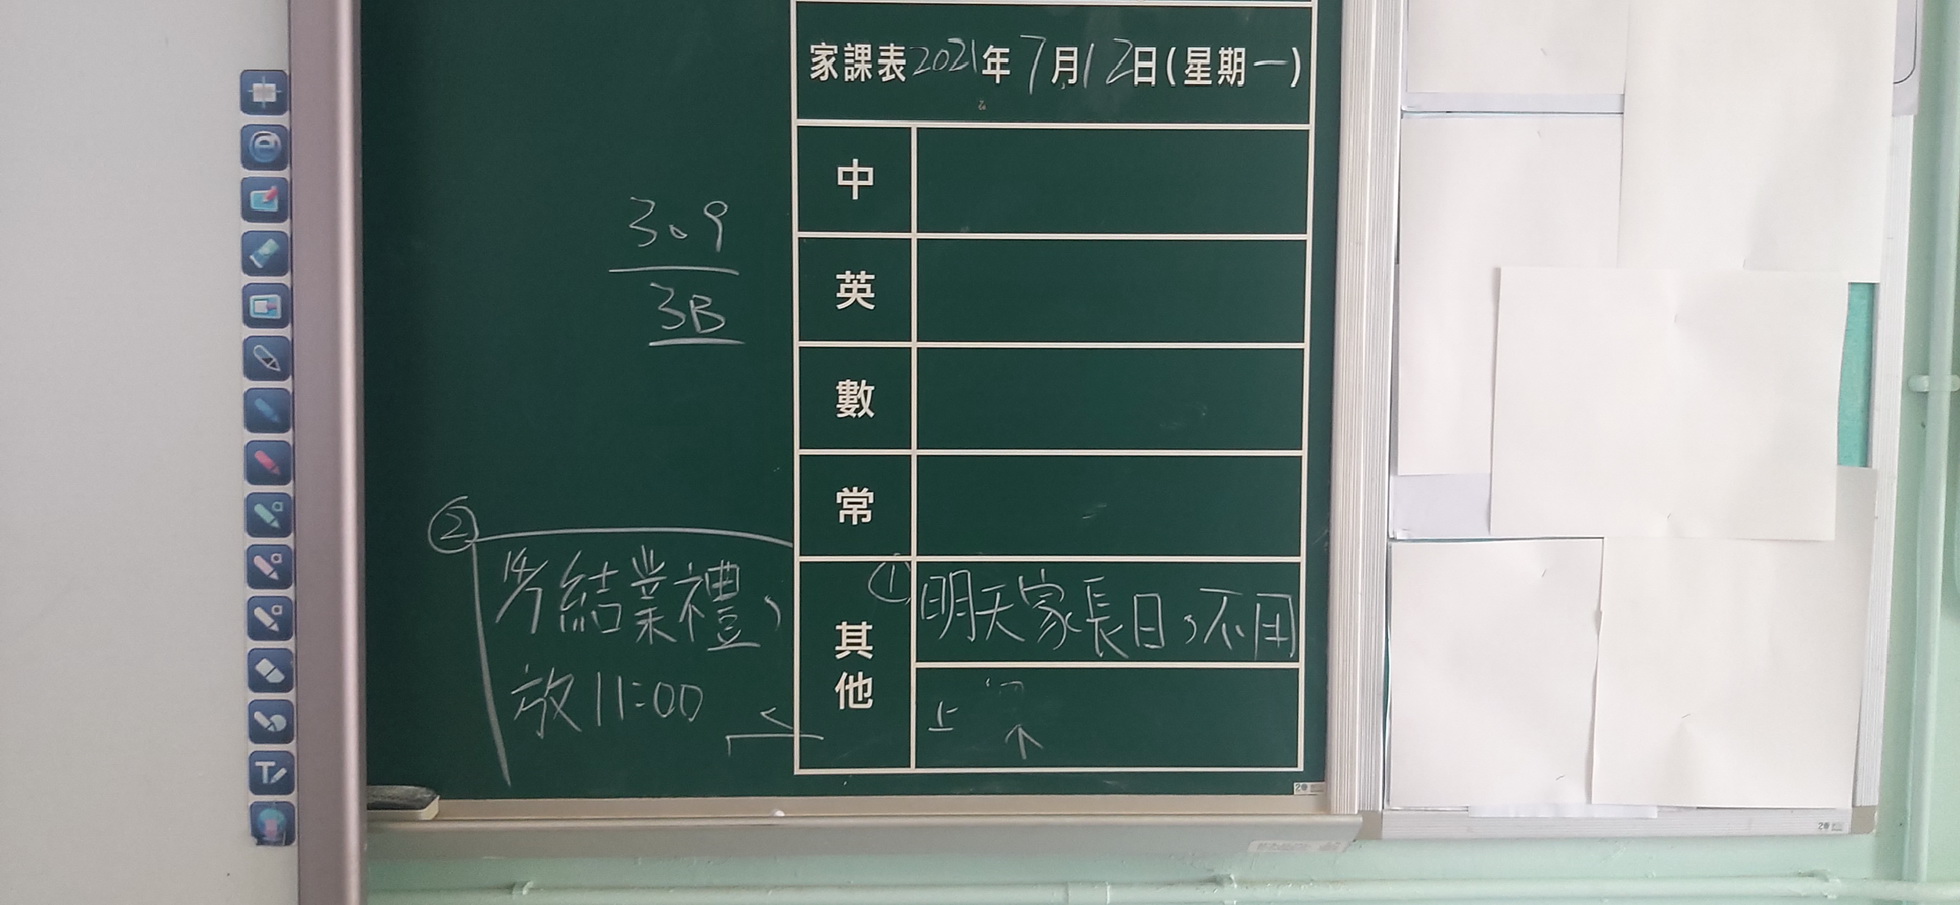 家課表2021年7月12日(星期一)
中
英
數
常
其他
①明天家長日,不用
上
309
3B
②
14/7結業禮,
放11:00